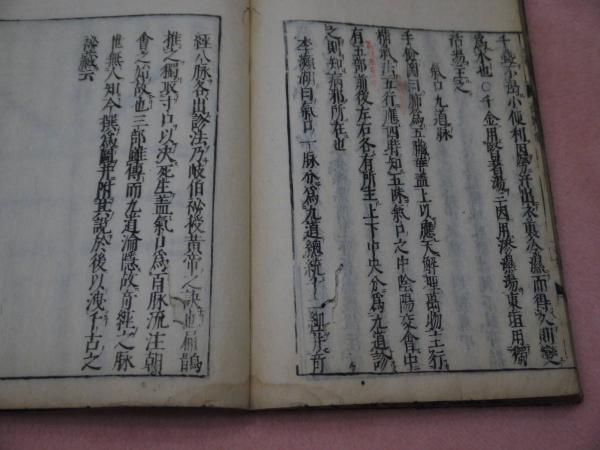 千金小品小便利因房活出衣裏冷濕而得久則變
為水也○千金用滲濕湯三因用滲濕湯東垣用獨
活湯主之
氣口九道脉
手檢圖曰肺為五臟華蓋上以應天解理萬物主行
精氣法五行應四時知五味氣口之中陰陽交會中
有五部前後左右各有所主上下中央分為九道診
之則知病邪所在也
李瀕湖曰氣口一脉分為九道總統十二經并奇
經八脉各出診法乃岐伯秘授黃帝之訣也扁鵲
推之獨取寸口以決死生蓋氣口為百脉流注朝
會之始故也三部雖傳而九道淪隱故奇經之脉
世無人知今撰為圖并附其說於後以洩千古之
秘藏云